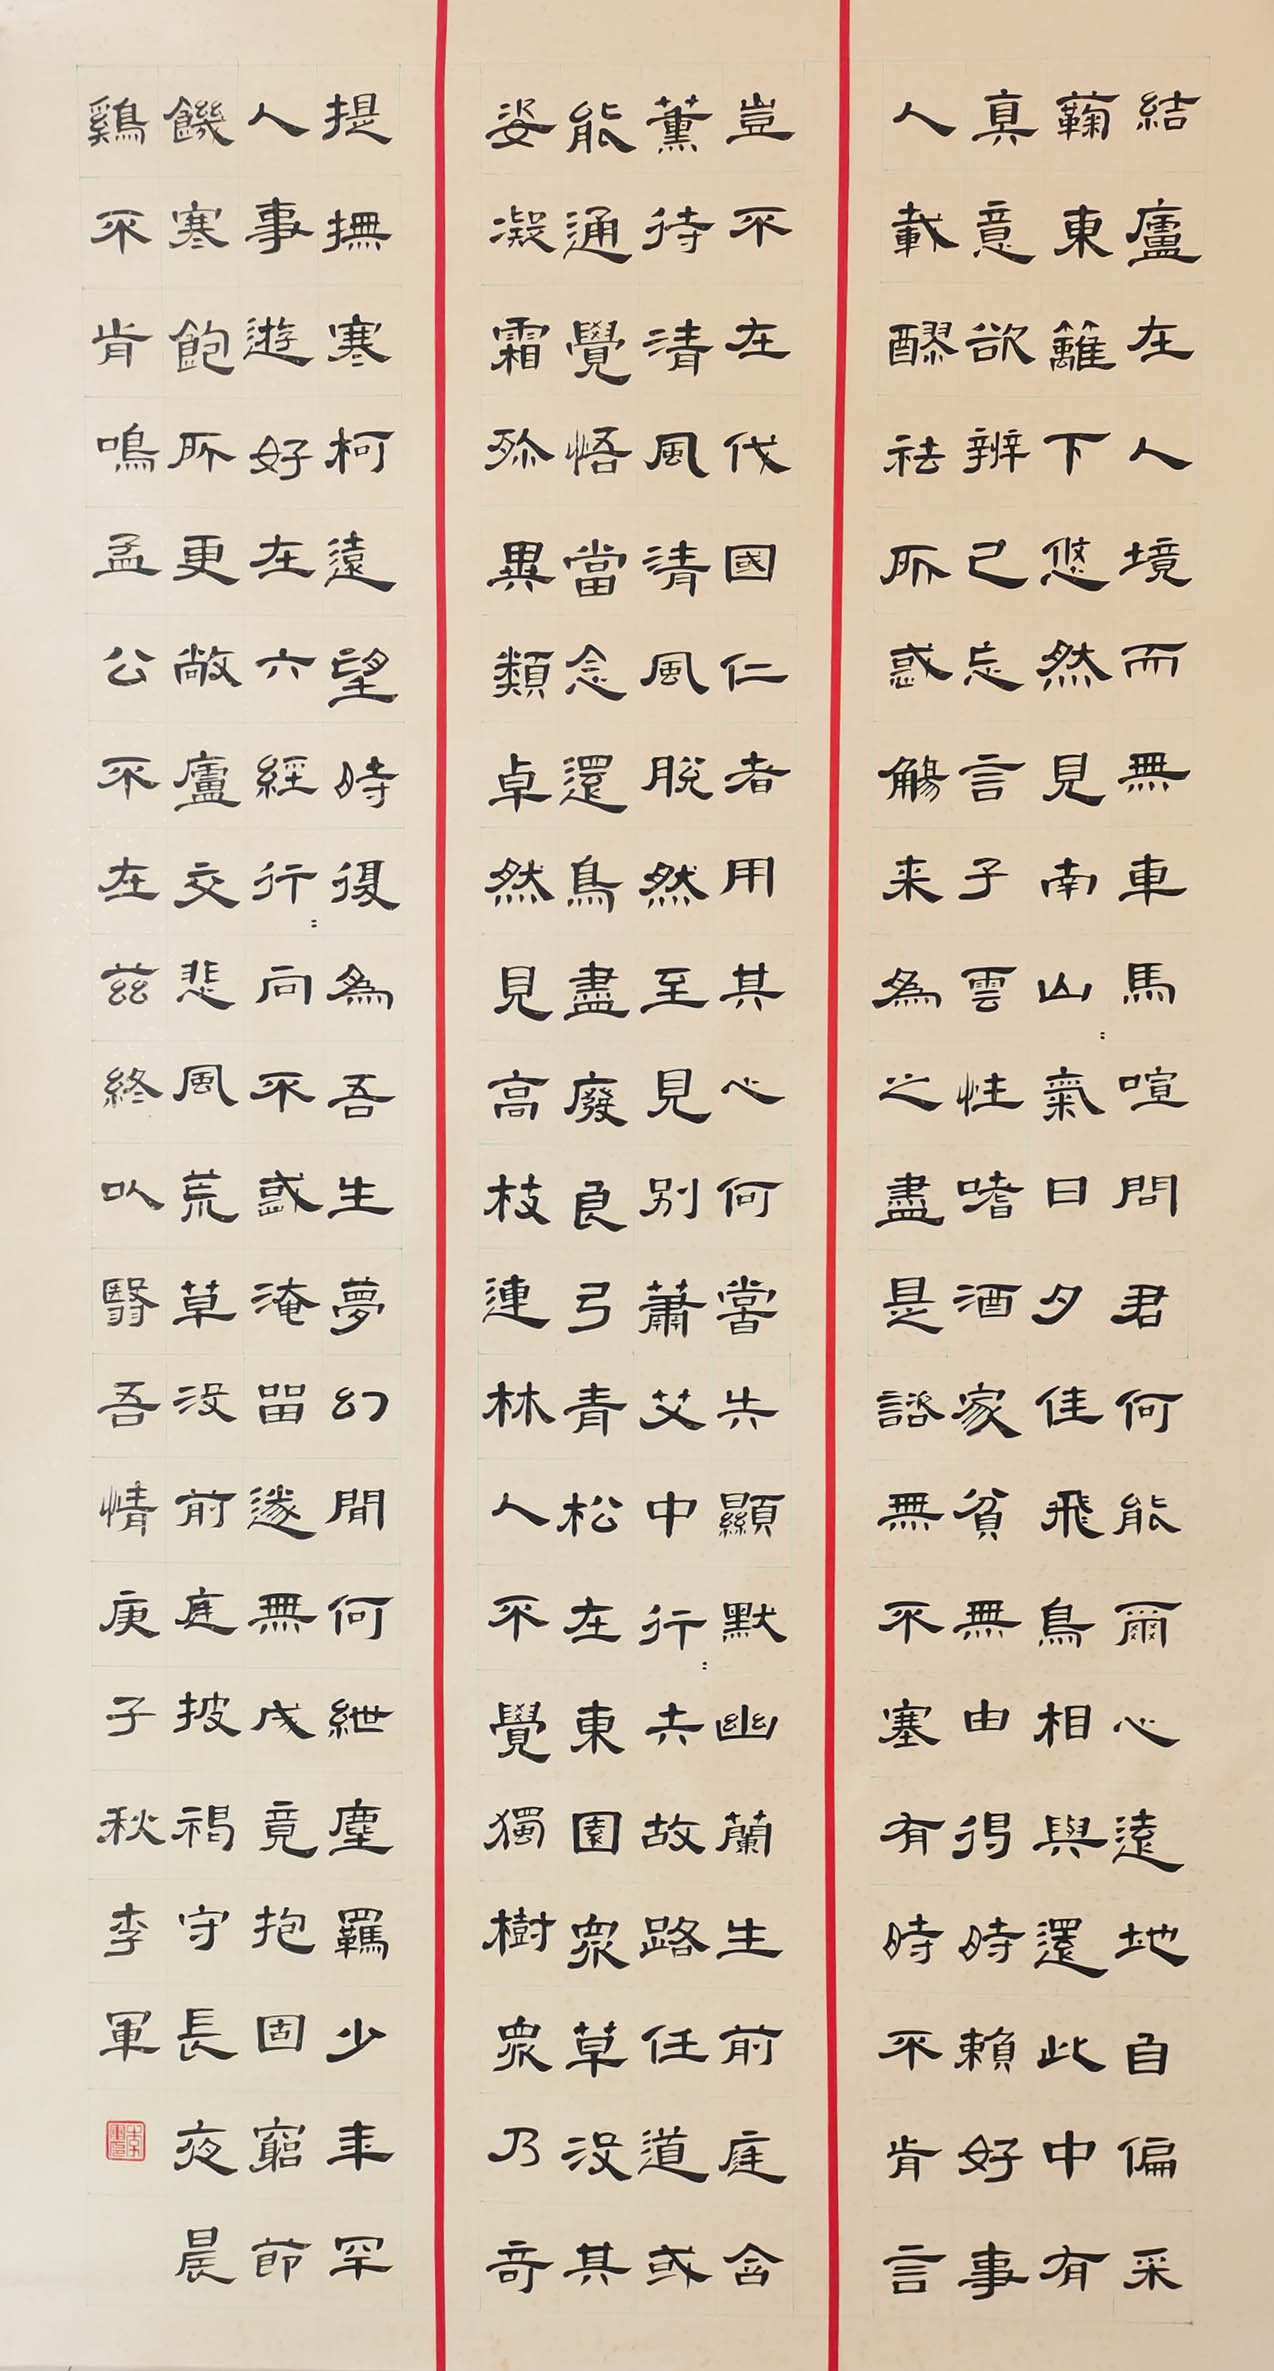 結廬在人境而無車馬喧問君何能爾心遠地自偏采
蘜東籬下悠然見南山氣日夕佳飛鳥相與還此中有
真意欲辨已忘言子雲性嗜酒家貧無由得時賴好事
人載醪祛所惑觴来為之盡是諮無不塞有時不肯言
豈不在伐國仁者用其心何嘗失顯默幽蘭生前庭含
薰待清風清風脫然至見別蕭艾中行行失故路任道或
能通覺悟當念還鳥盡廢良弓青松在東園眾草沒其
姿凝霜殄異類卓然見高枝連林人不覺獨樹眾乃奇
提撫寒柯遠望時復為吾生夢幻間何紲塵羈少年罕
人事遊好在六經行行向不惑淹留遂無成竟抱固窮節
饑寒飽所更敝廬交悲風荒草沒前庭披褐守長夜晨
鷄不肯鳴孟公不在茲終以翳吾情庚子秋李軍